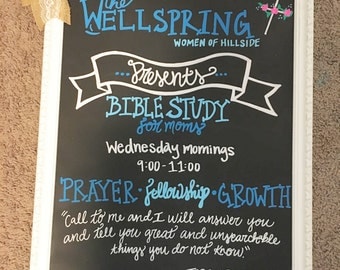 the
WELLSPRING
WOMEN OF HILLSIDE
...Presents...
BIBLE STUDY
for moms
Wednesday mornings
9:00-11:00
PRAYER · fellowship · GROWTH
"Call to me and I will answer you
and tell you great and unsearchable
things you do not know."